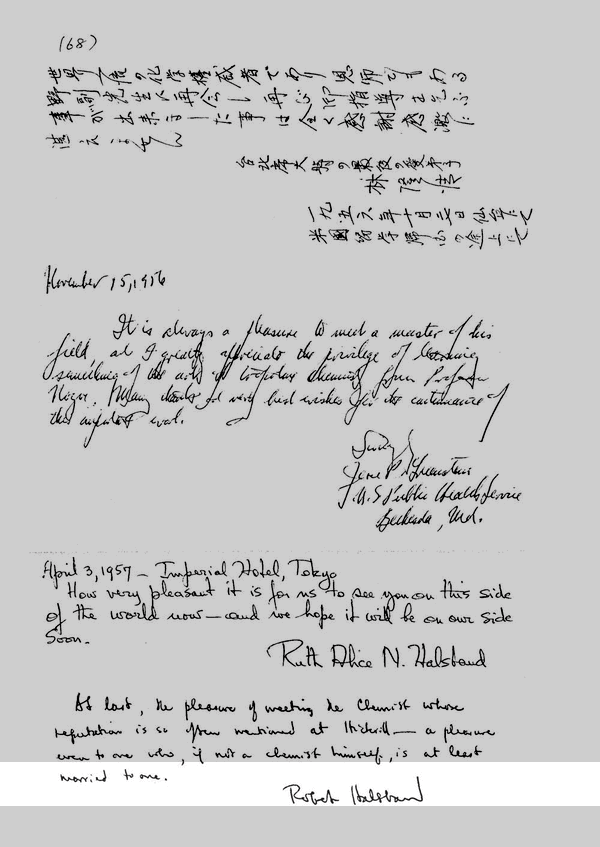 (68)
世界一流の化学権威者であり恩師でもある
野副先生に再会し再び御指導を
事が出来ました事は全く感謝感激に
堪えません
台北帝大時の最後の
林隆
一九五六年十月 日仙台にて
米国留学 の途上にて
November 15, 1956
It is always a pleasure to meet a master of his
field, and I greatly appreciate the privilege of learning
something of the art of tropolone chemistry from Professor
Nozoe. Many thanks and very best wishes for the continuance of
this important work.
Jesse P. Greenstein
U.S Public Health Service
Bethesda, Md.
April 3, 1957 – Imperial Hotel, Tokyo
How very pleasant it is for us to see you on this side
of the world now — and we hope it will be on our side
soon.
Ruth Alice N. Halsband
At last, the pleasure of meeting the chemist whose
reputation is so often mentioned at — a pleasure
even to one who, if not a chemist himself, is at least
married to one.
Robert Halsband